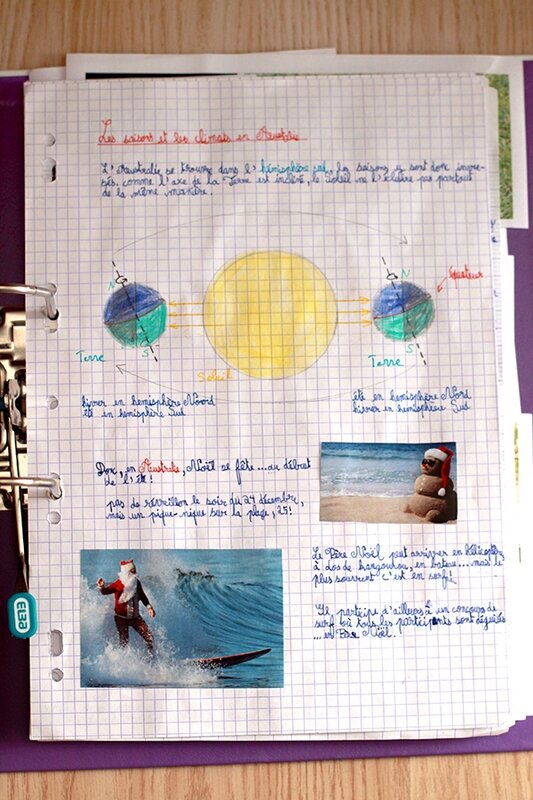 Les saisons et les climats en Australie
L'Australie se trouve dans l'hémisphère sud, les saisons y sont donc inver-
sés. comme l'axe de la Terre est incliné, le Soleil ne l'éclaire pas partout
de la même manière.
N
N
équateur
S
S
Terre
Soleil
Terre
hivver en hemisphère Noord
été en hemisphère Sud
été en hemisphère Nord
hivver en hemisphère Sud
Donc, en Australie, Noël se fête...au début
de l'été!
pas de réveillon le soir du 24 décembre,
mais un pique-nique sur la plage, 25!
Le Père Noël peut arriver en hélicoptère,
à dos de kangourou, en bateau...mais le
plus souvent c'est en surf!
Il participe d'ailleurs à un concours de
surf où tous les participants sont déguisés
...en Père Noël.
ELBA